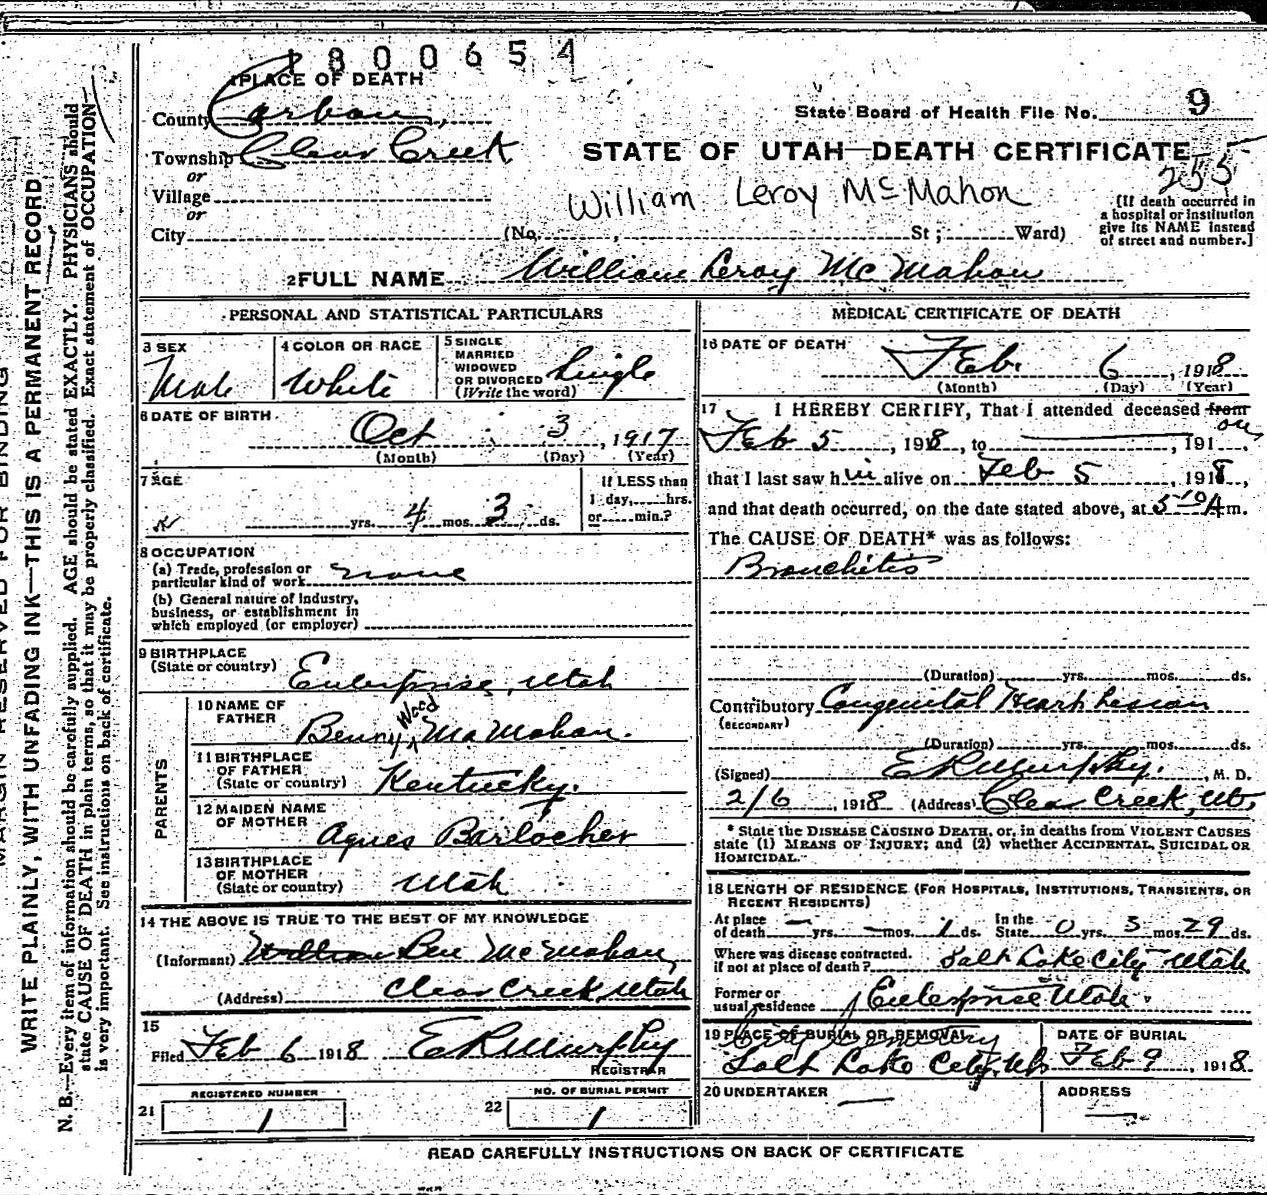 1800654
1 PLACE OF DEATH
County Carbon,
State Board of Health File No. 9
Township Clear Creek
or
STATE OF UTAH—DEATH CERTIFICATE
255
Village
or
William Leroy McMahon
[If death occurred in a hospital or institution give its NAME instead of street and number.]
City (No. , St ; Ward)
2 FULL NAME William Leroy McMahon
PERSONAL AND STATISTICAL PARTICULARS
3 SEX
Male
4 COLOR OR RACE
White
5 SINGLE MARRIED WIDOWED OR DIVORCED (Write the word) Single
6 DATE OF BIRTH
Oct 3, 1917
(Month) (Day) (Year)
7 AGE
yrs. 4 mos. 3 ds.
If LESS than
1 day, hrs.
or min.?
8 OCCUPATION
(a) Trade, profession or
particular kind of work none
(b) General nature of industry,
business, or establishment in
which employed (or employer)
9 BIRTHPLACE
(State or country) Enterprise, Utah
PARENTS
10 NAME OF
FATHER
Benny Wood McMahon.
11 BIRTHPLACE
OF FATHER
(State or country) Kentucky.
12 MAIDEN NAME
OF MOTHER
Agnes Barlocher
13 BIRTHPLACE
OF MOTHER
(State or country) Utah
14 THE ABOVE IS TRUE TO THE BEST OF MY KNOWLEDGE
(Informant) William Ben McMahon,
(Address) Clear Creek, Utah
15
Filed Feb 6 1918 E R Murphy
REGISTRAR
REGISTERED NUMBER
21 1
NO. OF BURIAL PERMIT
22 1
MEDICAL CERTIFICATE OF DEATH
16 DATE OF DEATH
Feb. 6, 1918
(Month) (Day) (Year)
17 I HEREBY CERTIFY, That I attended deceased from
on
Feb 5, 1918, to , 191
that I last saw him alive on Feb 5, 1918,
and that death occurred, on the date stated above, at 5:10 A m.
The CAUSE OF DEATH* was as follows:
Bronchitis
(Duration) yrs. mos. ds.
Contributory Congenital Heart Lesion
(SECONDARY)
(Duration) yrs. mos. ds.
(Signed) E R Murphy., M. D.
2/6, 1918 (Address) Clear Creek, Ut.
* State the DISEASE CAUSING DEATH, or, in deaths from VIOLENT CAUSES
state (1) MEANS OF INJURY; and (2) whether ACCIDENTAL, SUICIDAL OR
HOMICIDAL.
18 LENGTH OF RESIDENCE (FOR HOSPITALS, INSTITUTIONS, TRANSIENTS, OR
RECENT RESIDENTS)
At place
of death — yrs. — mos. 1 ds. In the State 0 yrs. 3 mos 29 ds.
Where was disease contracted,
if not at place of death? Salt Lake City Utah
Former or
usual residence Enterprise Utah.
19 PLACE OF BURIAL OR REMOVAL
City Cemetery
Salt Lake City, Ut.
DATE OF BURIAL
Feb 9, 1918
20 UNDERTAKER —
ADDRESS
—
READ CAREFULLY INSTRUCTIONS ON BACK OF CERTIFICATE
MARGIN RESERVED FOR BINDING
WRITE PLAINLY, WITH UNFADING INK—THIS IS A PERMANENT RECORD
N. B.—Every item of information should be carefully supplied. AGE should be stated EXACTLY. PHYSICIANS should
state CAUSE OF DEATH in plain terms, so that it may be properly classified. Exact statement of OCCUPATION
is very important. See instructions on back of certificate.